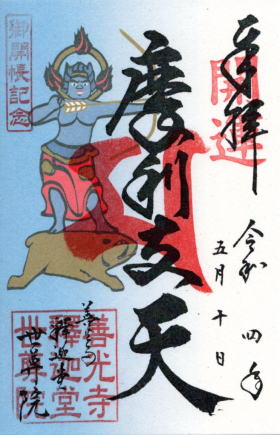 奉拝
開運
令和 四年
五月 十日
摩利支天
善光寺
釈迦堂
世尊院
御開帳記念
善光寺
釋迦堂
世尊院